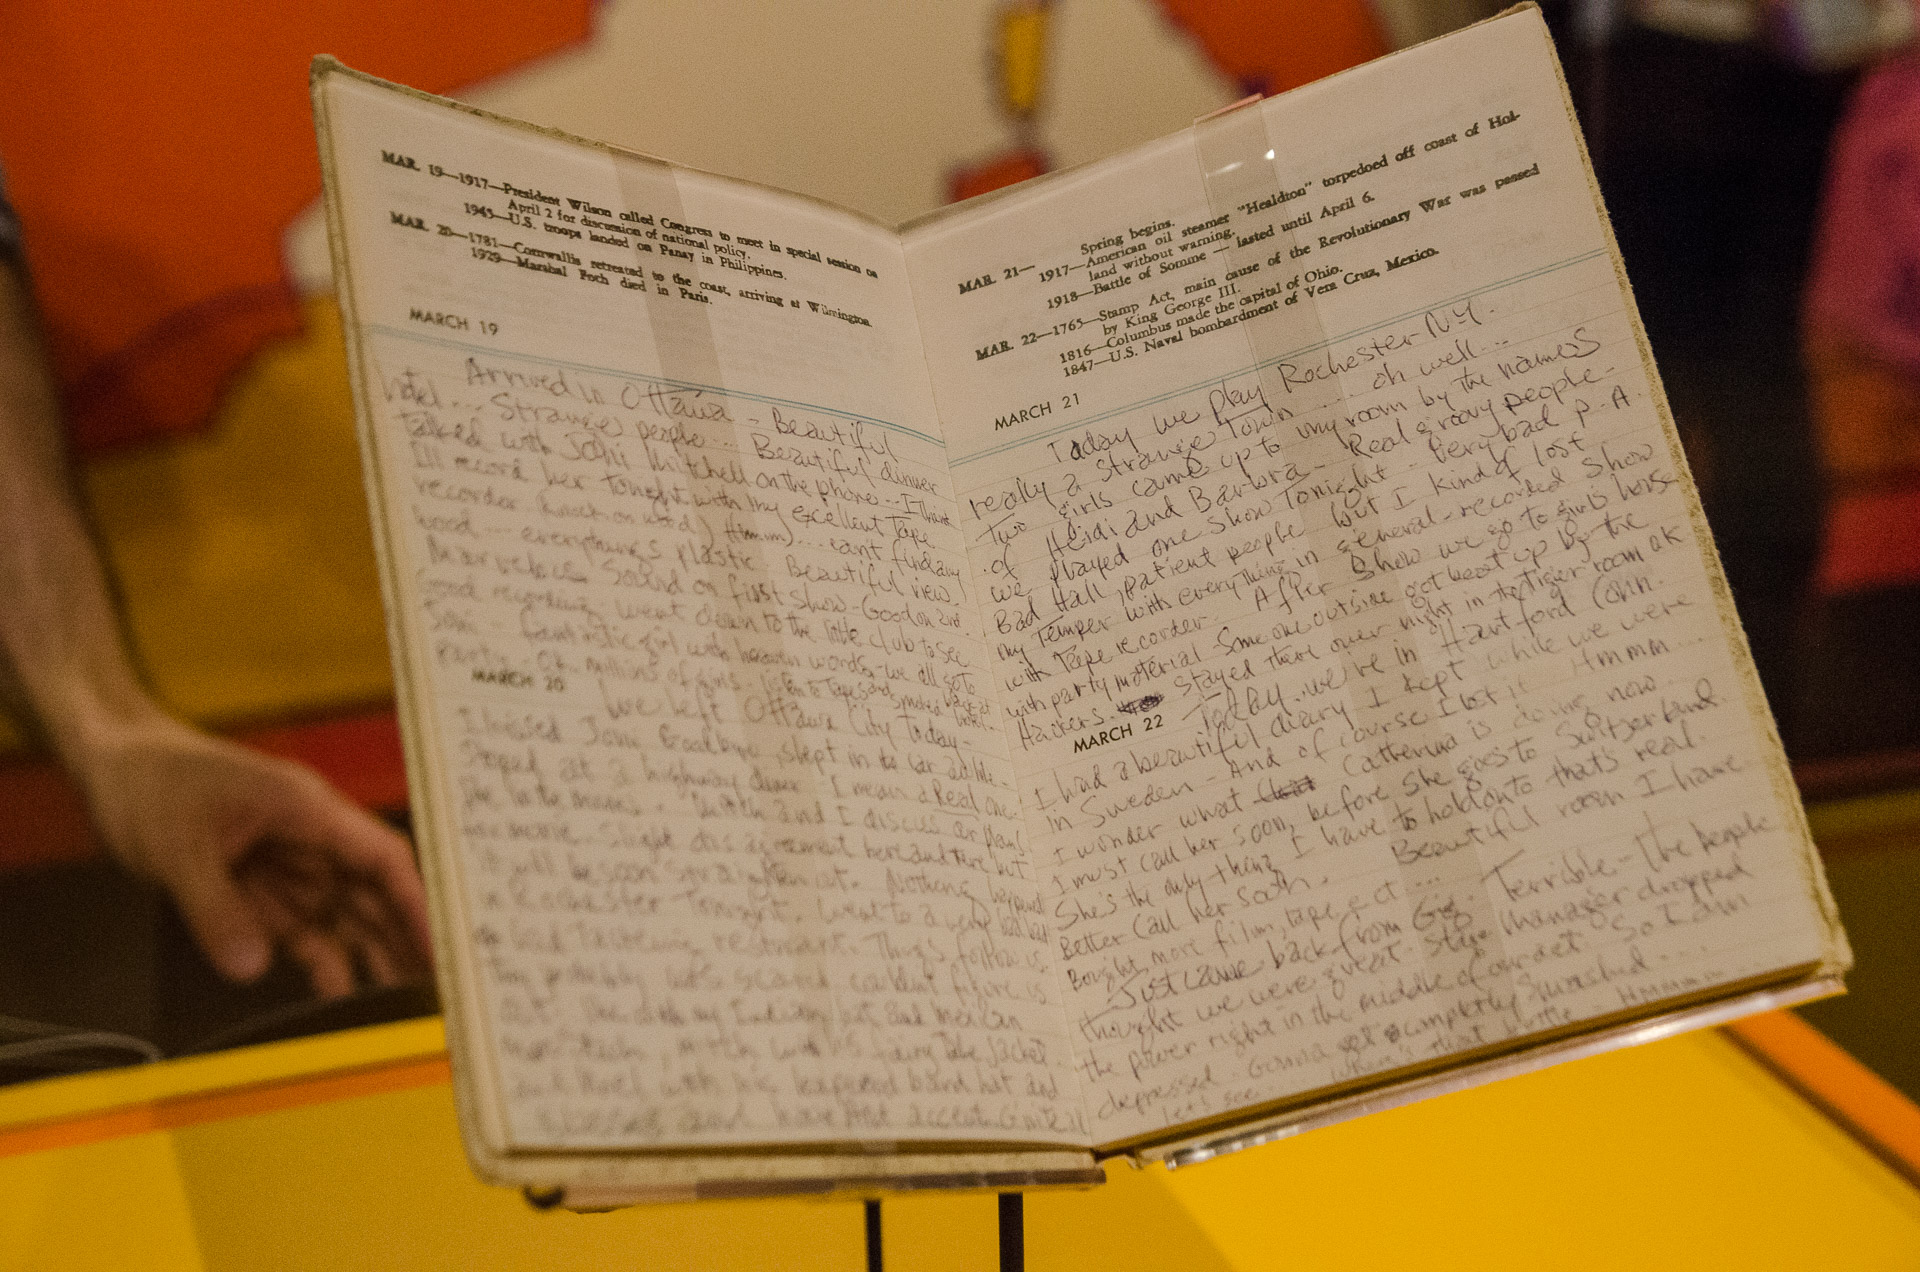 MAR. 19—1917—President Wilson called Congress to meet in special session on
April 2 for discussion of national policy.
1945—U.S. troops landed on Panay in Philippines.
MAR. 20—1781—Cornwallis retreated to the coast, arriving at Wilmington.
1929—Marshal Foch died in Paris.
MARCH 19
Arrived in Ottawa - Beautiful
hotel ... Strange people ... Beautiful dinner
Talked with Joni Mitchell on the phone - I think
I'll record her tonight with my excellent Tape
recorder (knock on wood) Hmmm) ... can't find any
wood ... everythings plastic. Beautiful view.
Marvelous sound on first show - Good on 2nd.
Good recording. went down to the little club to see
Joni - fantastic girl with heaven words - we all go to
party. OK. millions of girls. listen to Tapes and smoked back at hotel.
MARCH 20
We left Ottawa City Today -
I kissed Joni Goodbye, slept in the car a while -
Stoped at a highway diner - I mean a Real one.
like in the movies. Mitch and I discuss our plans
movie. Slight disagreement here and there but
it will be soon straighten out. Nothing happened
in Rochester Tonight. Went to a very bad bad
bad Tasteing resturant. Thugs follow us.
They probably was scared couldent figure us
out. Me with my Indian hat and mexican
moustache, Mitch with his fairy tale Jacket
and Noel with his leopard band hat and
glasses and hair and accent. G'nite all
Spring begins.
MAR. 21— 1917—American oil steamer "Healdton" torpedoed off coast of Hol-
land without warning.
1918—Battle of Somme — lasted until April 6.
MAR. 22—1765—Stamp Act, main cause of the Revolutionary War was passed
by King George III.
1816—Columbus made the capital of Ohio.
1847—U.S. Naval bombardment of Vera Cruz, Mexico.
MARCH 21
Today we play Rochester N.Y.
really a strange Town ... oh well ...
Two girls came up to my room by the names
of Heidi and Barbra - Real groovy people -
we played one show Tonight - Very bad P.A.
Bad Hall, patient people but I kind of lost
my Temper with everything in general - recorded show
with Tape recorder. After show we go to girls house
with party material - Someone outside got beat up by the
Hackers. Stayed there over night in the Tiger room OK
MARCH 22
Today we're in Hartford Conn.
I had a beautiful diary I kept while we were
in Sweden - And of course I lost it Hmmm ...
I wonder what Catherina is doing now.
I must call her soon, before she goes to Switzerland.
She's the only thing I have to hold onto that's real.
Better call her sooth. Beautiful room I have
Bought more film, tape, ect ...
Just came back from Gig. Terrible - the people
thought we were great. Stage Manager dropped
the power right in the middle of our act. So I am
depressed. Gonna get completely smashed ...
let's see ... where's that bottle ... Hmmm ...